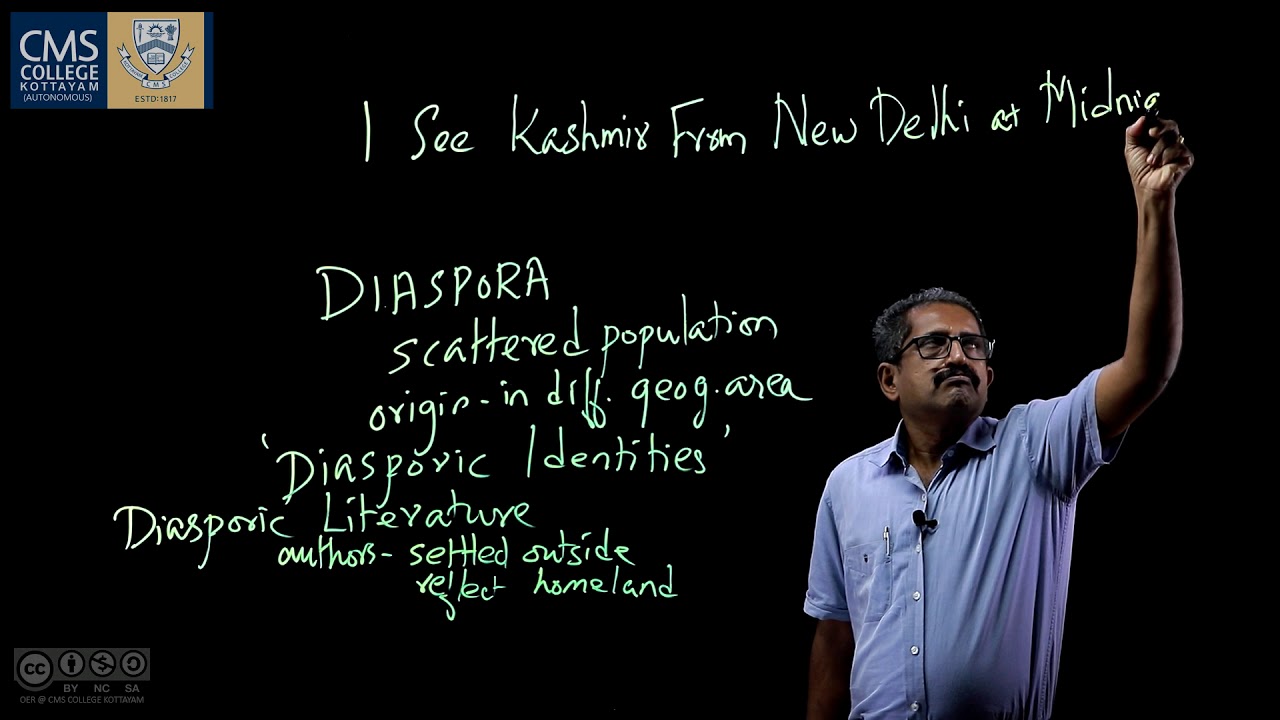 CMS
COLLEGE
KOTTAYAM
(AUTONOMOUS)
CMS
ESTD:1817
I See Kashmir From New Delhi at Midnig
DIASPORA
scattered population
origin - in diff. geog. area
'Diasporic Identities'
Diasporic Literature
authors - settled outside
reflect homeland
cc
BY NC SA
OER @ CMS COLLEGE KOTTAYAM